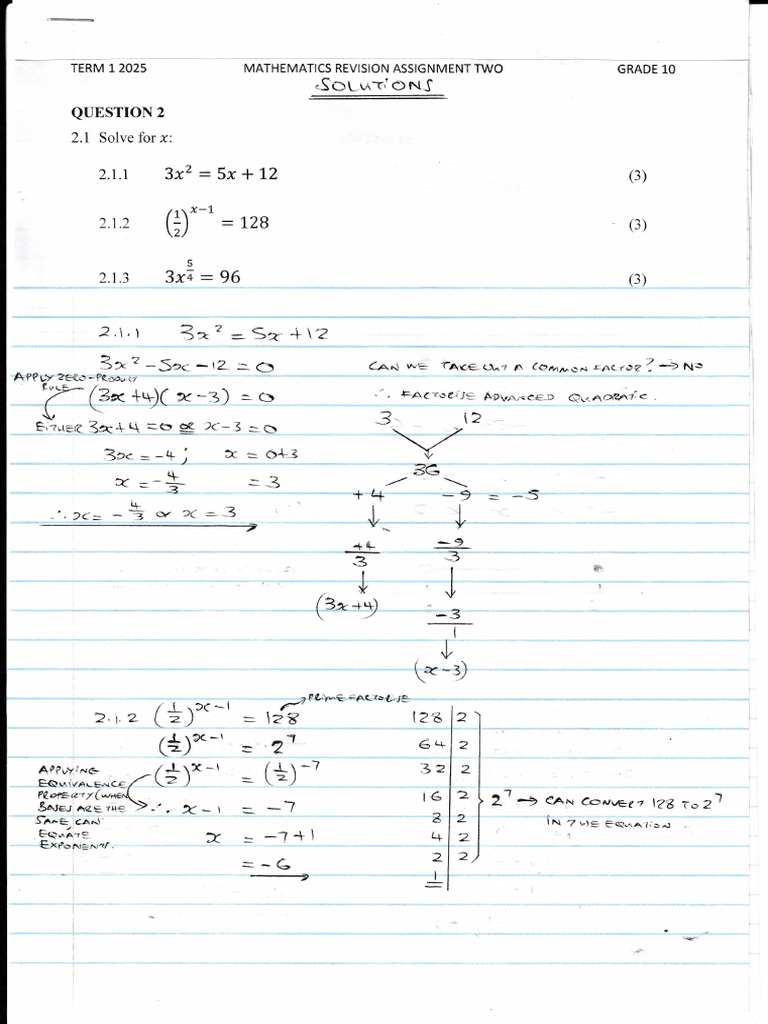 TERM 1 2025 MATHEMATICS REVISION ASSIGNMENT TWO GRADE 10
SOLUTIONS
QUESTION 2
2.1 Solve for x:
2.1.1 3x² = 5x + 12 (3)
2.1.2 (1/2)^(x−1) = 128 (3)
2.1.3 3x^(5/4) = 96 (3)
2.1.1 3x² = 5x + 12
3x² − 5x − 12 = 0 CAN WE TAKE OUT A COMMON FACTOR? → NO
APPLY ZERO-PRODUCT
RULE
(3x + 4)(x − 3) = 0 ∴ FACTORISE ADVANCED QUADRATIC.
EITHER 3x + 4 = 0 or x − 3 = 0
3x = −4; x = 0+3
x = −4/3 = 3
∴ x = −4/3 or x = 3
3 12
36
+4 −9 = −5
+4/3 −9/3
(3x+4) −3/1
(x−3)
2.1.2 (1/2)^(x−1) = 128 → PRIME FACTORISE
(1/2)^(x−1) = 2⁷
(1/2)^(x−1) = (1/2)^−7
APPLYING
EQUIVALENCE
PROPERTY (WHEN
BASES ARE THE
SAME CAN
EQUATE
EXPONENTS.
∴ x − 1 = −7
x = −7+1
= −6
128 | 2
64 | 2
32 | 2
16 | 2
8 | 2
4 | 2
2 | 2
1
2⁷ → CAN CONVERT 128 TO 2⁷
IN THE EQUATION